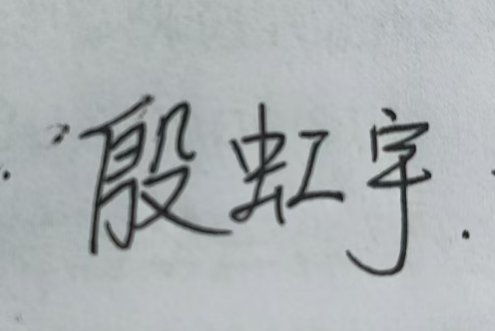 殷虹宇